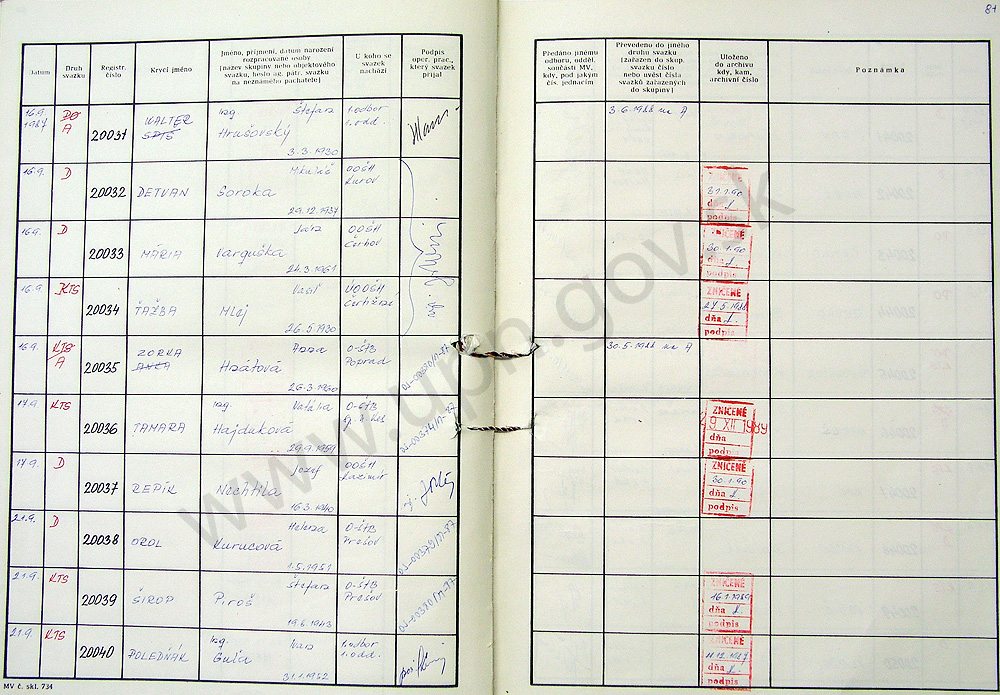 81
Datum
Druh svazku
Registr. číslo
Krycí jméno
Jméno, příjmení, datum narození rozpracované osoby [název skupiny nebo objektového svazku, heslo ag. pátr. svazku na neznámého pachatele]
U koho se svazek nachází
Podpis oper. prac., který svazek přijal
Předáno jinému odboru, odděl. součásti MV, kdy, pod jakým čís. jednacím
Převedeno do jiného druhu svazku [zařazen do skup. svazku číslo nebo uvést čísla svazků zařazených do skupiny]
Uloženo do archivu kdy, kam, archivní číslo
Poznámka
16.9. 1987 DO A 20031 WALTER Ing. Štefan Hrušovský 3.3.1930 1.odbor 1.odd. 3.6.1988 na A
16.9. D 20032 DETVAN Mikuláš Soroka 29.12.1937 OOŠH Kurov ZNIČENÉ 31.1.90 dňa podpis
16.9. D 20033 MÁRIA Varguška 24.3.1961 OOŠH ZNIČENÉ 30.1.90 dňa podpis
16.9. KTS 20034 ŤAŽBA Vasiľ Mlej 26.5.1930 ZNIČENÉ 27.5.1988 dňa podpis
16.9. KTS A 20035 ZORKA ANCA Anna 26.3.1960 O-ŠtB Poprad 30.5.1988 na A
17.9. KTS 20036 TAMARA Ing. Natália Hajduková 29.9.1959 O-ŠtB ZNIČENÉ 29 XII 1989 dňa podpis
17.9. D 20037 REPÍK Jozef Nechtila 16.3.1940 OOŠH ZNIČENÉ 30.1.90 dňa podpis
21.9. D 20038 OROL Helena Kurucová 1.5.1951 O-ŠtB Prešov
21.9. KTS 20039 ŠIROP Štefan Piroš 19.6.1943 O-ŠtB Prešov ZNIČENÉ 16.1.1989 dňa podpis
21.9. KTS 20040 POLEDŇÁK Ing. Ivan Guľa 31.1.1952 1.odbor 1.odd. ZNIČENÉ 11.12.1987 dňa podpis
MV č. skl. 734
www.upn.gov.sk